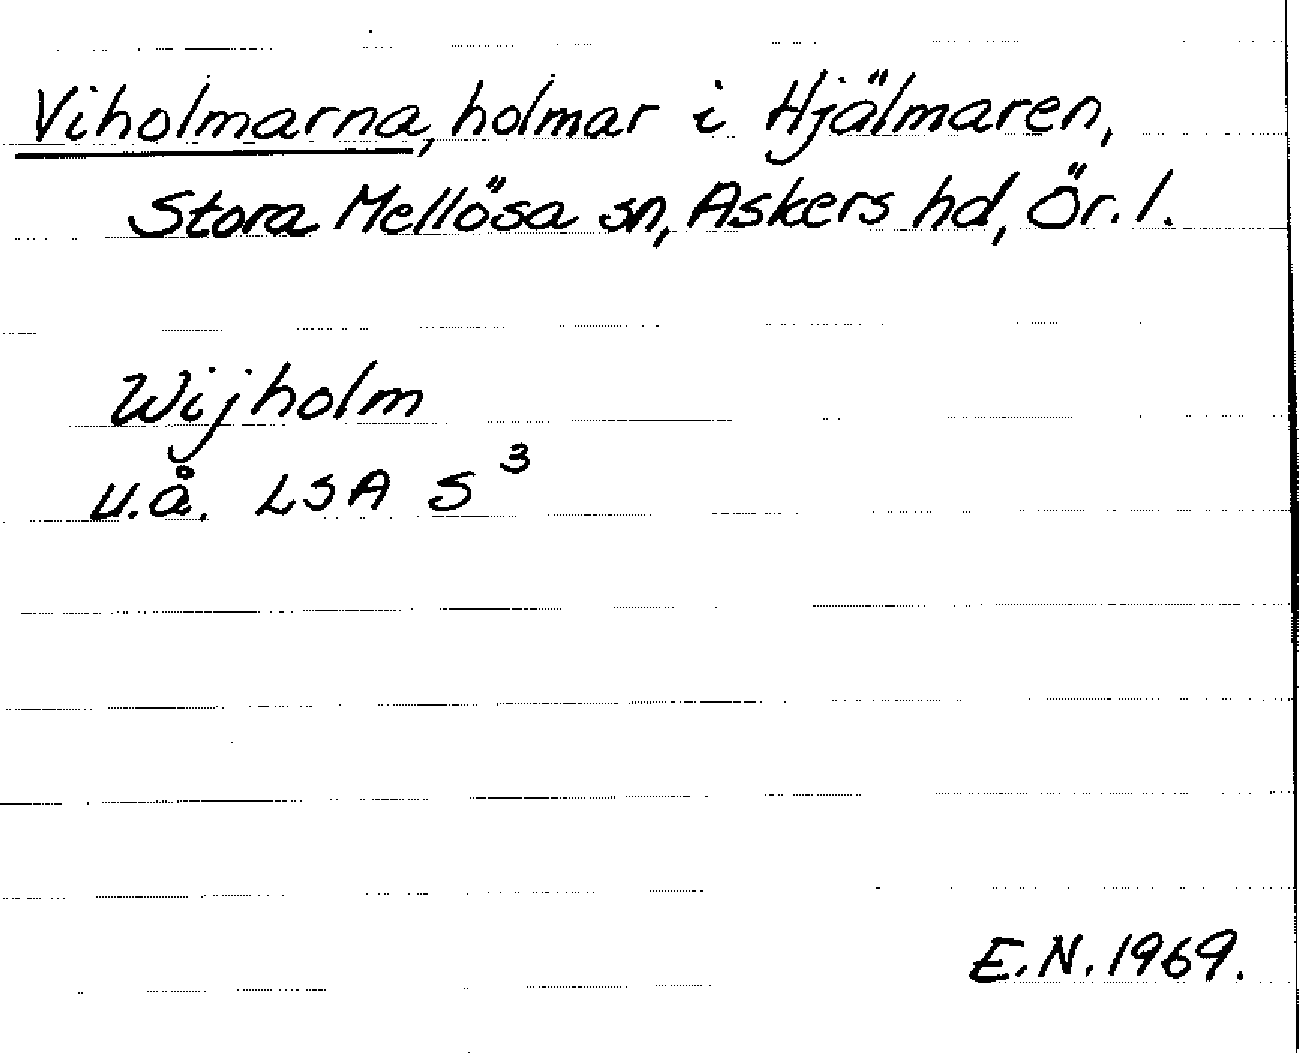 Viholmarna, holmar i Hjälmaren,
Stora Mellösa sn, Askers hd, Ör. l.
Wijholm
u.å. LSA S³
E.N. 1969.